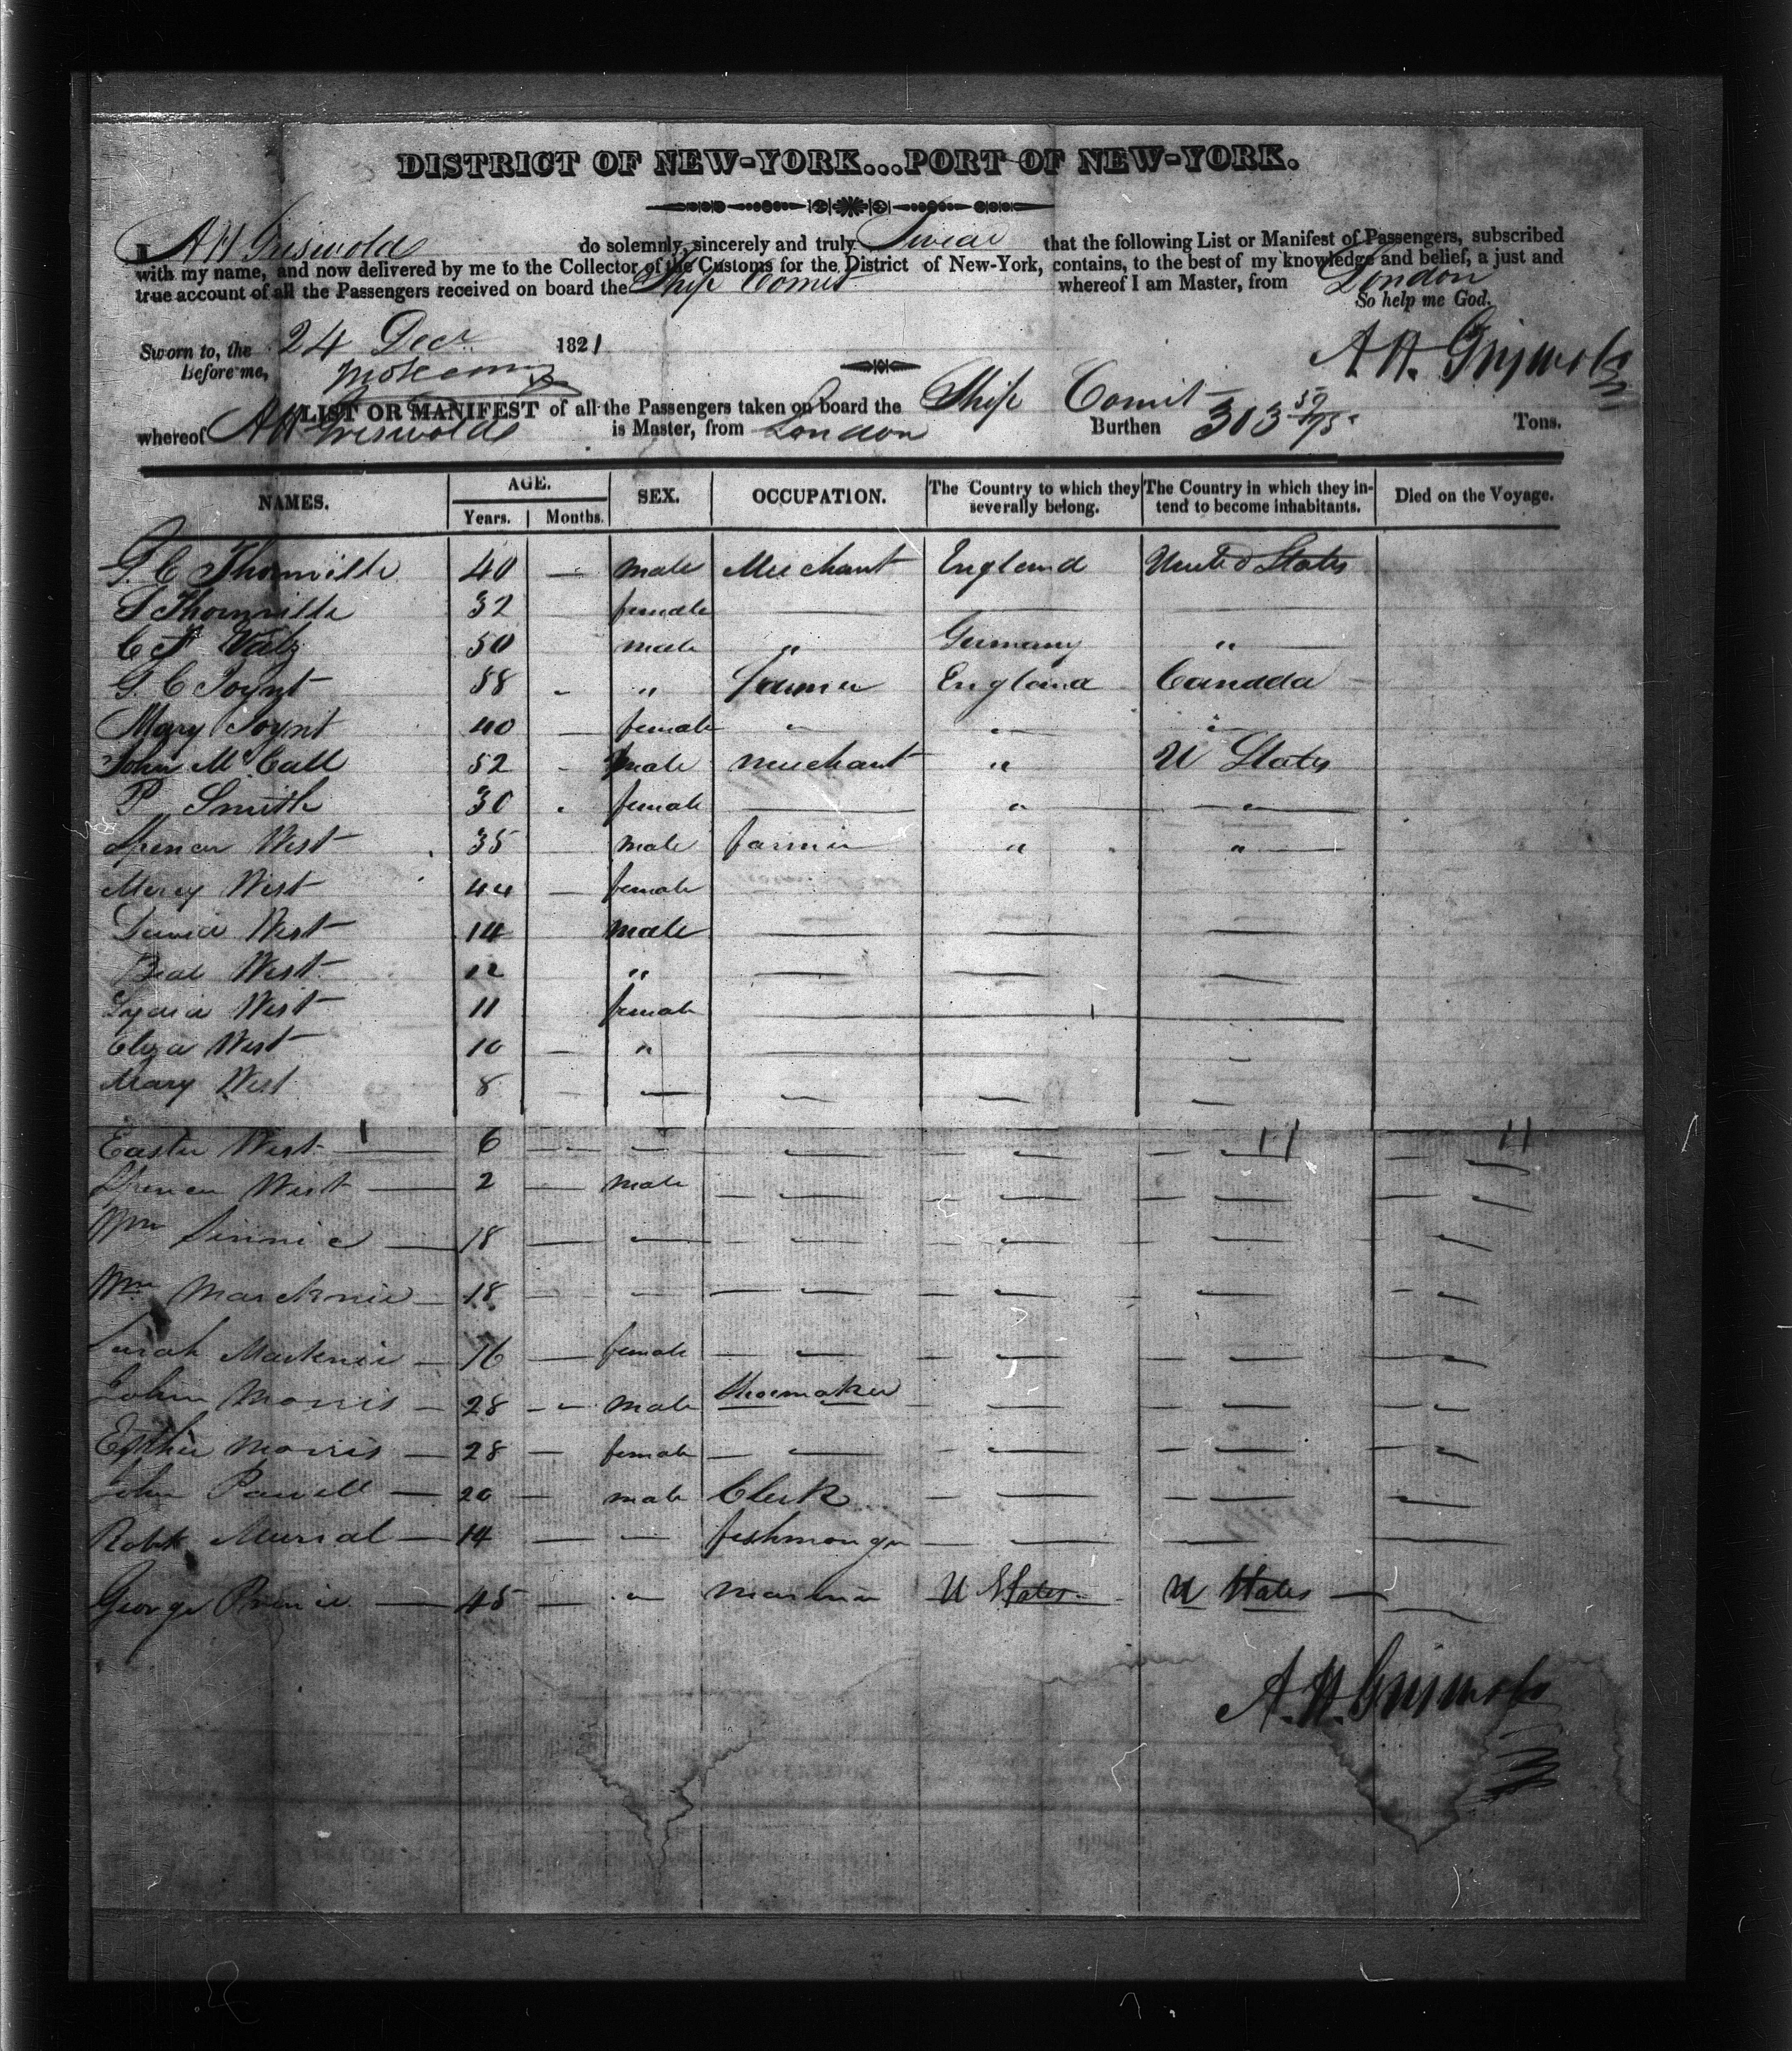 DISTRICT OF NEW-YORK...PORT OF NEW-YORK.
I, A H Griswold do solemnly, sincerely and truly Swear that the following List or Manifest of Passengers, subscribed
with my name, and now delivered by me to the Collector of the Customs for the District of New-York, contains, to the best of my knowledge and belief, a just and
true account of all the Passengers received on board the Ship Comet whereof I am Master, from London
So help me God.
Sworn to, the 24 Decr 1821 A H. Griswold
Before me,
LIST OR MANIFEST of all the Passengers taken on board the Ship Comet
whereof A H Griswold is Master, from London Burthen 303 Tons.
NAMES. AGE. Years. Months. SEX. OCCUPATION. The Country to which they severally belong. The Country in which they intend to become inhabitants. Died on the Voyage.
G. C Thornville 40 — male Merchant England United States
S Thornville 32 female — — —
C F 50 male " Germany "
G. C Poynt 58 - " Farmer England Canada
Mary Poynt 40 — female " " "
John McCall 52 - male merchant " U States
P Smith 30 - female — " "
Spencer West 35 male farmer " "
Mercy West 44 — female
West 14 male — — —
Beal West 12 " — — —
Lydia West 11 female — — —
Eliza West 10 — " — — —
Mary West 8 — — — —
Easter West — 6 — — — — — —
Spencer West — 2 — male — — — —
Wm — 18 — — — — — —
Wm — 18 — — — — — —
Sarah — 16 — female — — — —
John Morris — 28 — male Shoemaker — — —
Esther Morris — 28 — female — — — —
John Powell — 20 — male Clerk — — —
Robt — 14 — — fishmonger — — —
George Prince — 45 — " Mariner U States U States —
A. H. Griswold